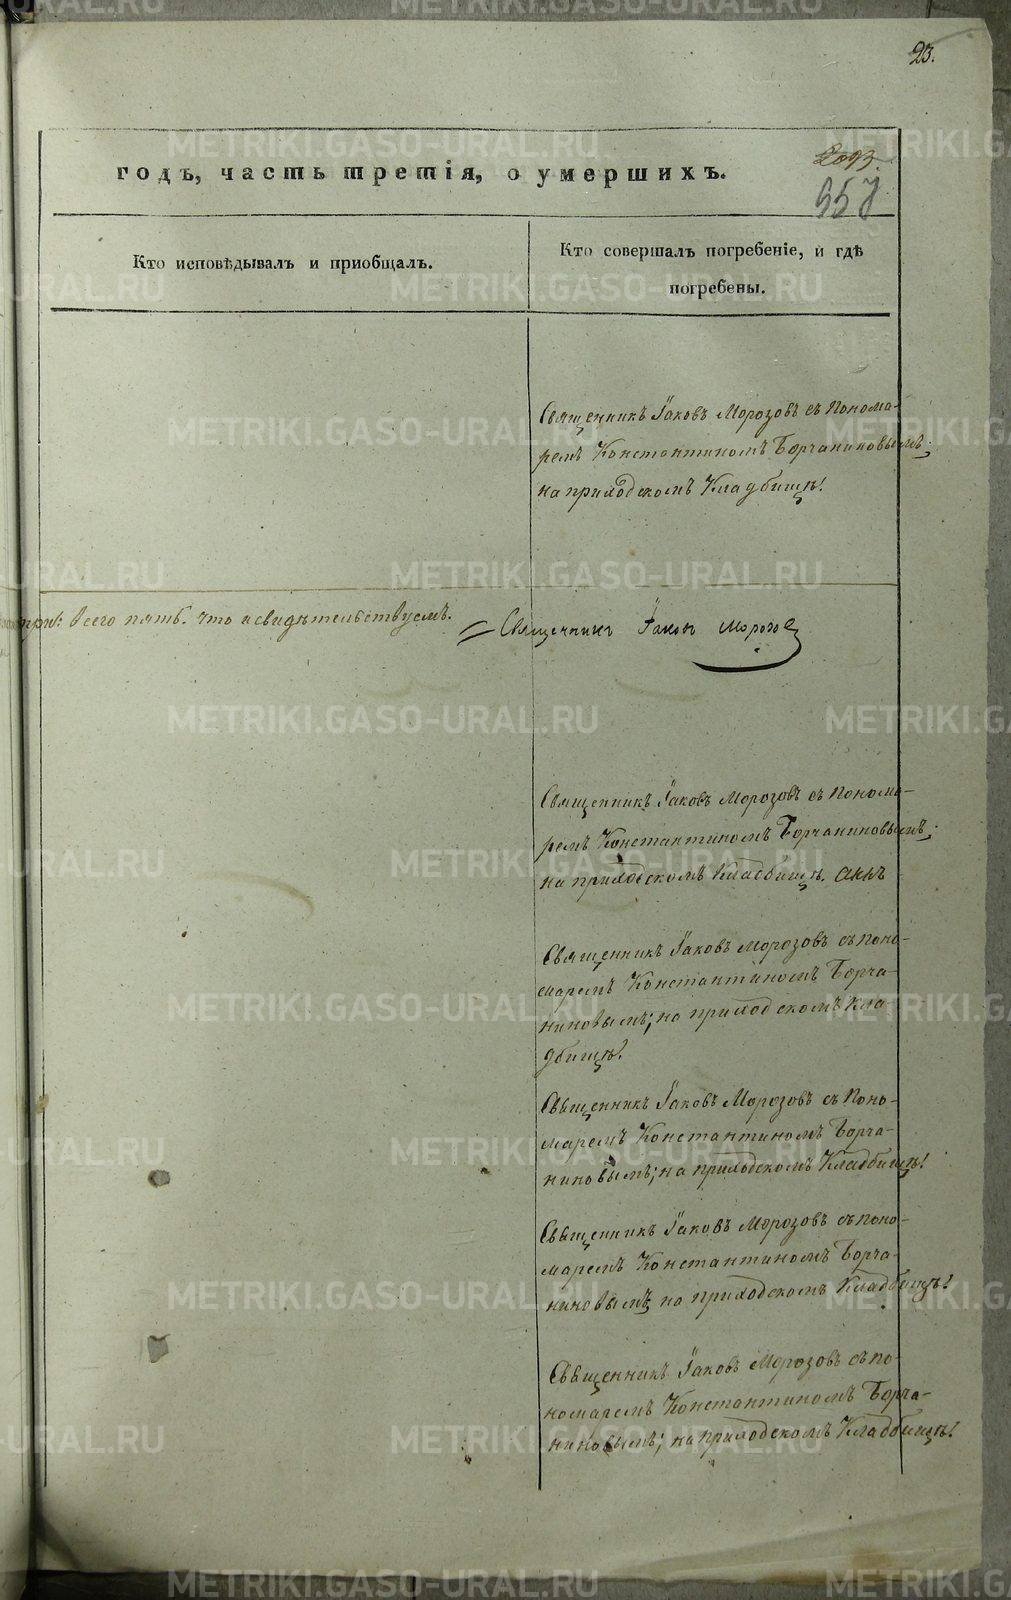 23.
годъ, часть третія, о умершихъ.
2093.
657
Кто исповѣдывалъ и пріобщалъ.
Кто совершалъ погребеніе, и гдѣ
погребены.
Священникъ Іаковъ Морозовъ съ Понома-
ремъ Константиномъ Борчаниновымъ;
на приходскомъ Кладбищѣ!
всего пять. что и свидѣтельствуемъ.
Священникъ Іаковъ Морозов
Священникъ Іаковъ Морозовъ съ Понома-
ремъ Константиномъ Борчаниновымъ;
на приходскомъ Кладбищѣ.
Священникъ Іаковъ Морозовъ съ Поно-
маремъ Константиномъ Борча-
ниновымъ; на приходскомъ Кла-
дбищѣ!
Священникъ Іаковъ Морозовъ съ Поно-
маремъ Константиномъ Борча-
ниновымъ; на приходскомъ Кладбищѣ!
Священникъ Іаковъ Морозовъ съ Поно-
маремъ Константиномъ Борча-
ниновымъ на приходскомъ Кладбищѣ!
Священникъ Іаковъ Морозовъ съ По-
номаремъ Константиномъ Борча-
ниновымъ; на приходскомъ Кладбищѣ!
METRIKI.GASO-URAL.RU